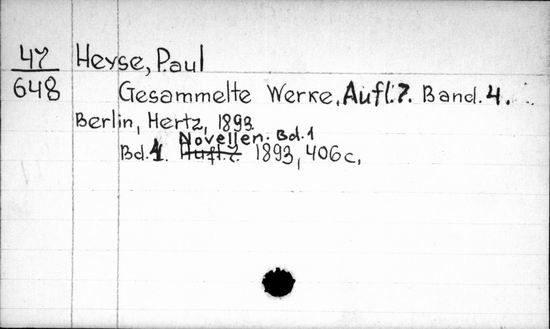 47 Heyse, Paul
648 Gesammelte Werke, Aufl. 7. Band. 4.
Berlin, Hertz, 1893.
Novellen. Bd. 1
Bd. 4. Aufl. 7. 1893, 406 c.